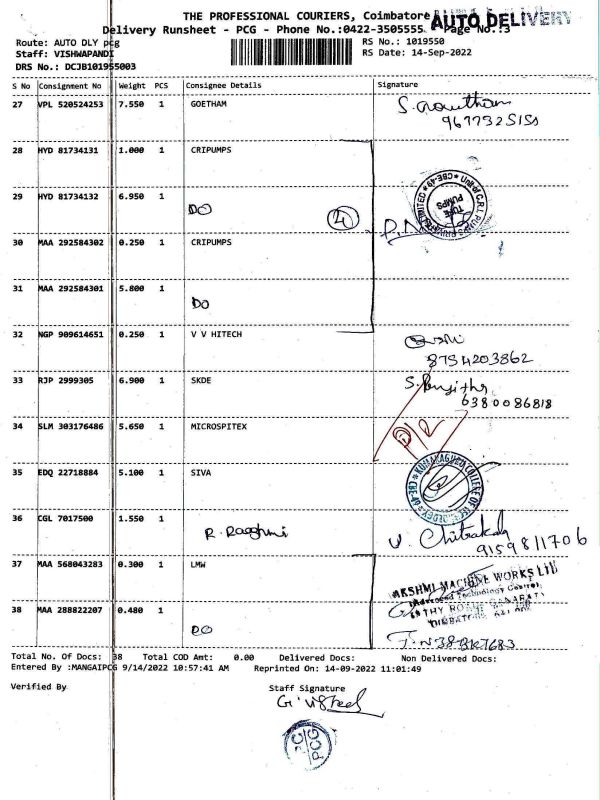 THE PROFESSIONAL COURIERS, Coimbatore
AUTO DELIVERY
Delivery Runsheet - PCG - Phone No.:0422-3505555 Page No.:3
Route: AUTO DLY pcg RS No.: 1019550
Staff: VISHWAPANDI RS Date: 14-Sep-2022
DRS No.: DCJB101955003
S No Consignment No Weight PCS Consignee Details Signature
27 VPL 520524253 7.550 1 GOETHAM
9677325155
28 HYD 81734131 1.000 1 CRIPUMPS
29 HYD 81734132 6.950 1 DO
4
Unit of C.R.I. PUMPS PRIVATE LIMITED * CBE-49 *
PUMPS
30 MAA 292584302 0.250 1 CRIPUMPS
31 MAA 292584301 5.800 1 DO
32 NGP 909614651 0.250 1 V V HITECH
8754203862
33 RJP 2999305 6.900 1 SKDE
6380086818
34 SLM 303176486 5.650 1 MICROSPITEX
35 EDQ 22718884 5.100 1 SIVA
KUMARAGURU COLLEGE OF
36 CGL 7017500 1.550 1
9159811706
37 MAA 568043283 0.300 1 LMW
AKSHMI MACHINE WORKS LTD
38 MAA 288822207 0.480 1 DO
Total No. Of Docs: 38 Total COD Amt: 0.00 Delivered Docs: Non Delivered Docs:
Entered By :MANGAIPCG 9/14/2022 10:57:41 AM Reprinted On: 14-09-2022 11:01:49
Verified By Staff Signature
PCG